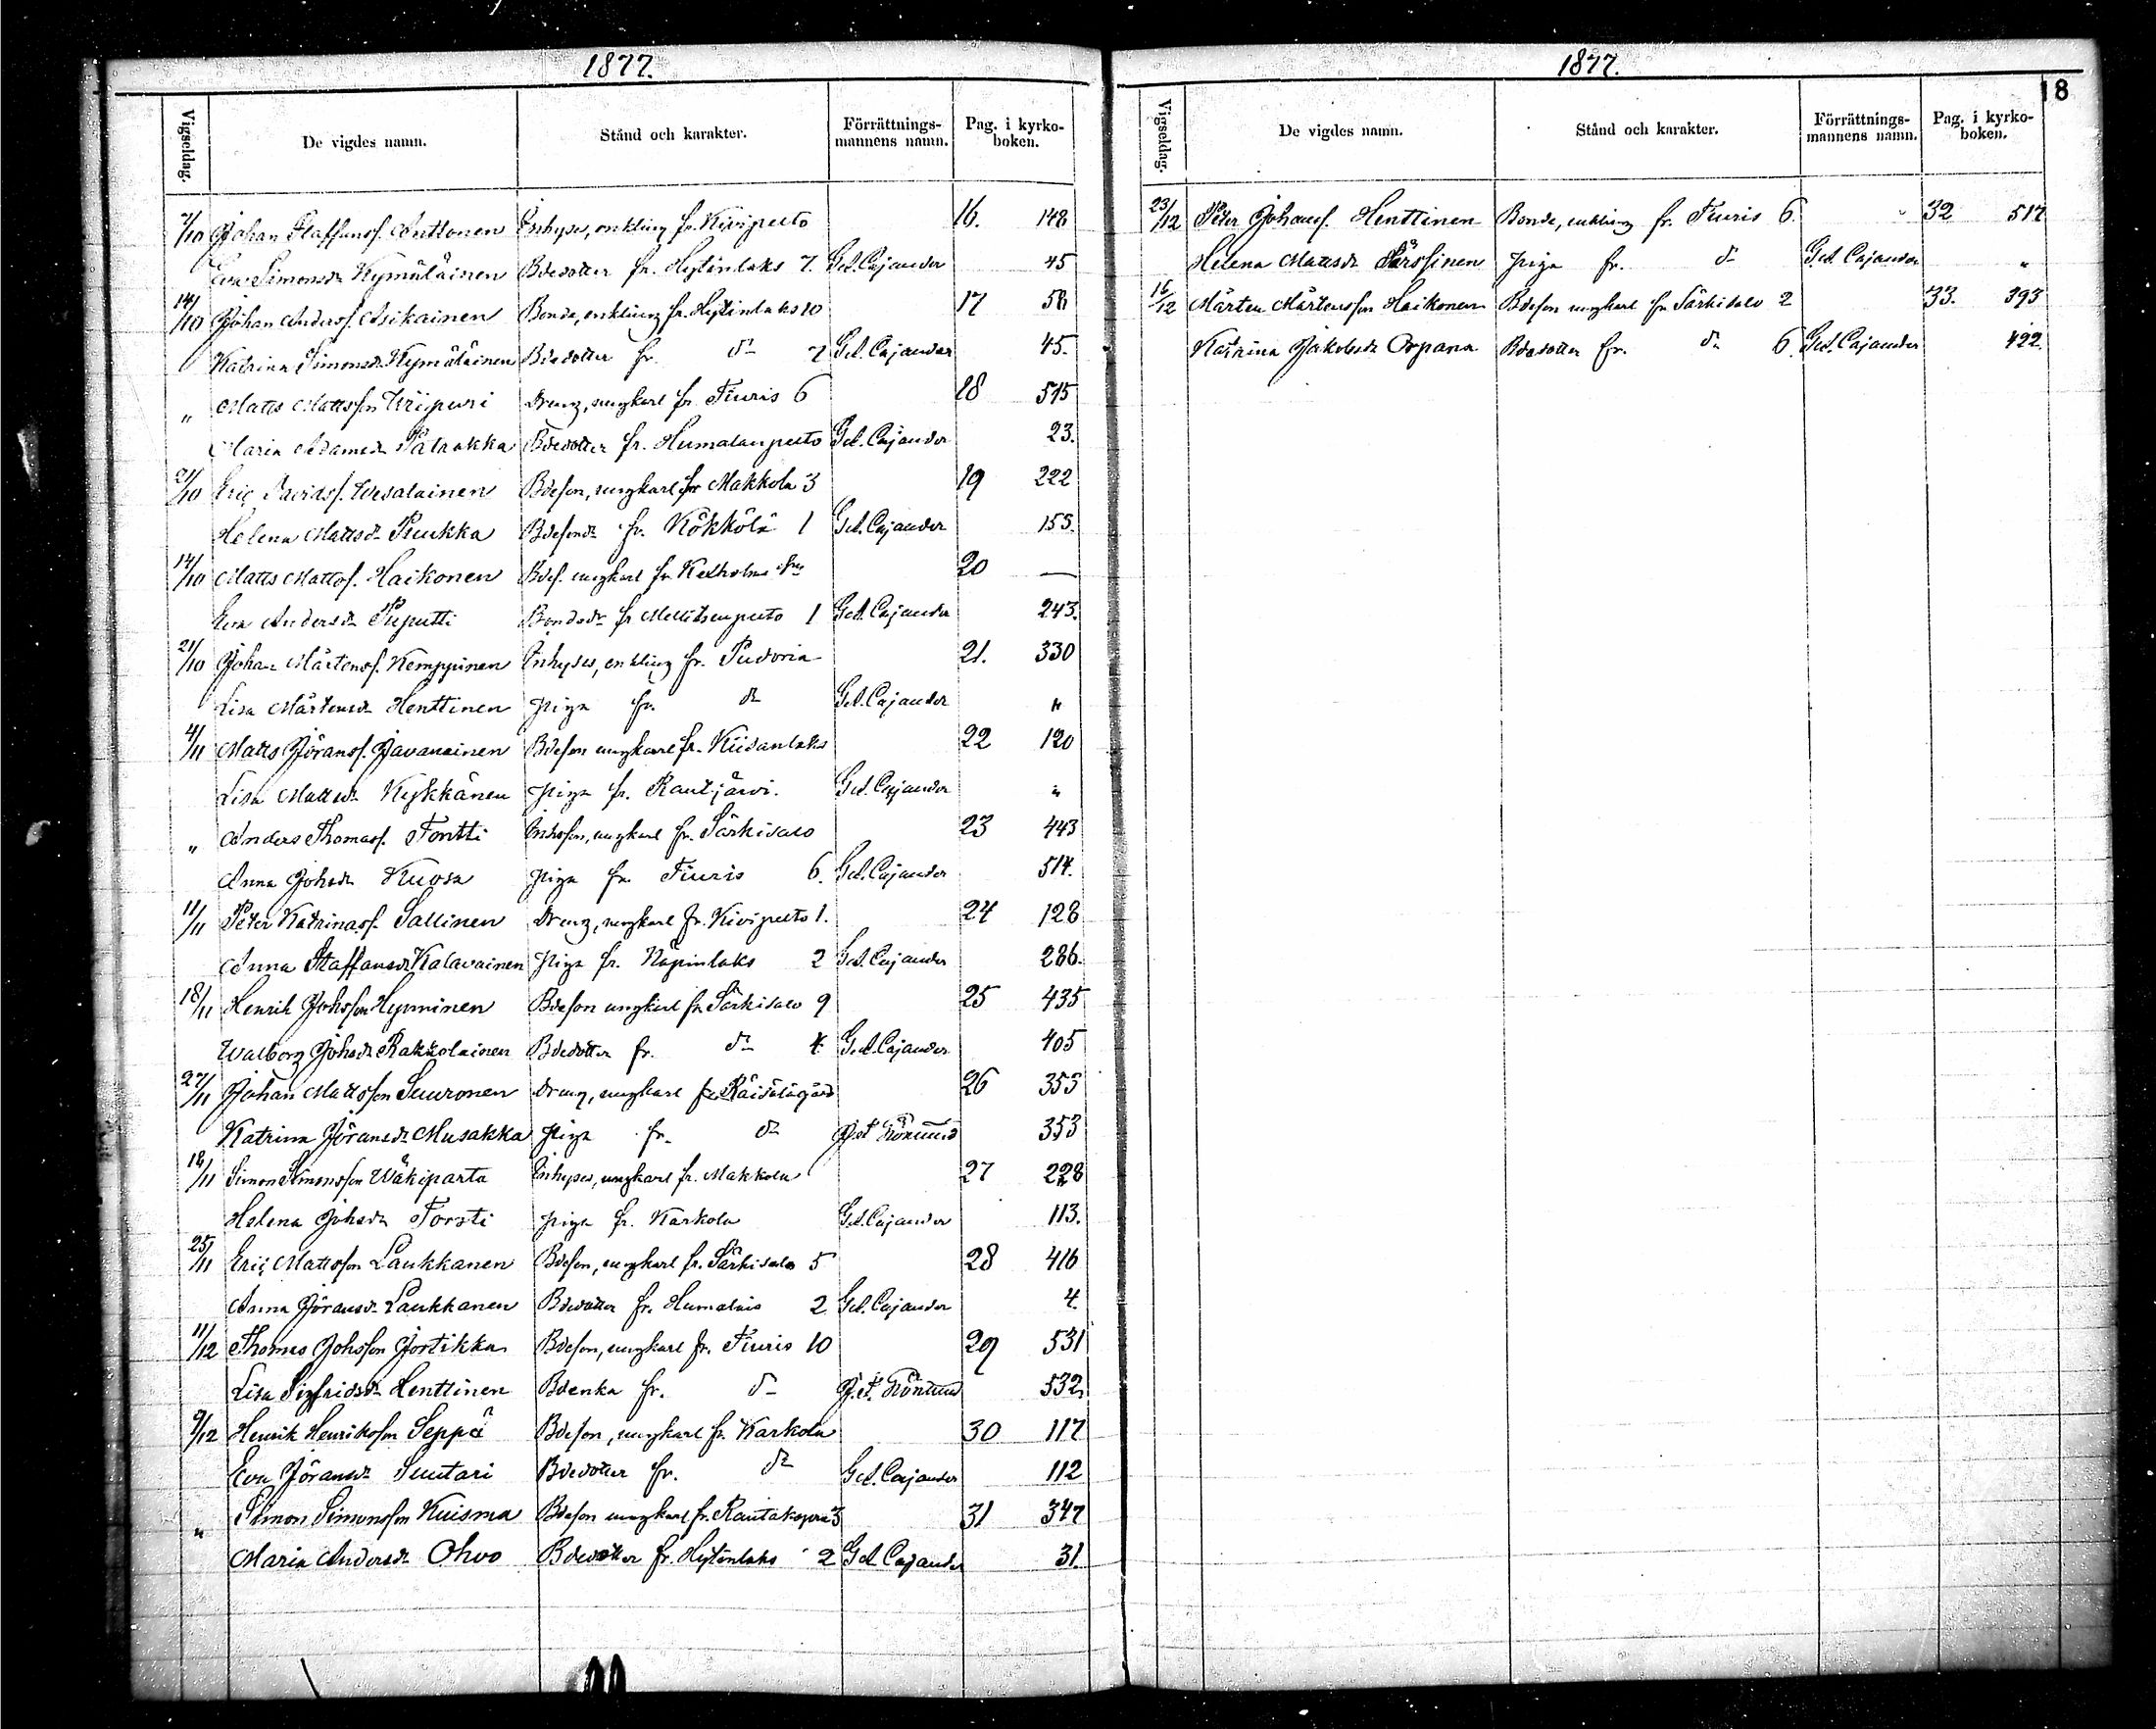 1877.
Vigseldag. De vigdes namn. Stånd och karakter. Förrättnings-mannens namn. Pag. i kyrko-boken.
7/10 Johan Staffansf. Anttonen Inhyses, enkling fr. Kivipelto 16. 148
Eva Simonsdr Kymäläinen Bdedotter fr. Hytinlaks 7. G.A. Cajander 45
14/10 Johan Andersf. Asikainen Bonde, enkling fr. Hytinlaks 10 17 56
Katrina Simonsdr Kymäläinen Bdedotter fr. do 7 G.A. Cajander 45.
" Matts Mattsson Wiipuri Dreng, ungkarl fr. Tiuris 6 18 515
Maria Adamsdr Patrakka Bdedotter fr. Humalanpelto G.A. Cajander 23.
21/10 Eric Davidsf. Wesalainen Bdeson, ungkarl fr Makkola 3 19 222
Helena Mattsdr Puukka Bdesondr fr. Kökkölä 1 G.A. Cajander 155.
14/10 Matts Mattsf. Haikonen Bdes. ungkarl fr Kexholms 20 —
Eva Andersdr Puputti Bondedr fr Mellitsenpelto 1 G.A. Cajander 243.
21/10 Johan Mårtensf. Kemppinen Inhyses, enkling fr. Pudoria 21. 330
Lisa Mårtensdr Henttinen piga fr. do G.A. Cajander "
4/11 Matts Jöransf. Javanainen Bdeson ungkarl fr. Kiisanlaks 22 120
Lisa Mattsdr Kykkänen piga fr. Rautjärvi. G.A. Cajander "
" Anders Thomasf. Tontti Inhoson, ungkarl fr. Särkisalo 23 443
Anna Johsdr Kuosa piga fr. Tiuris 6. G.A. Cajander 514.
11/11 Peter Katrinasf. Sallinen Dreng, ungkarl fr. Kivipelto 1. 24 128
Anna Staffansdr Kalavainen piga fr. Näpinlaks 2 G.A. Cajander 286.
18/11 Henrik Johsson Hyvninen Bdeson ungkarl fr Särkisalo 9 25 435
Walborg Johsdr Rakkolainen Bdedotter fr. do 4 G.A. Cajander 405
27/11 Johan Mattsson Suuronen Dreng, ungkarl fr. Räisälägård 26 353
Katrina Jöransdr Musakka piga fr. do 353
18/11 Simon Simonsson Wäkiparta Inhyses, ungkarl fr. Makkola 27 228
Helena Johsdr Torsti piga fr. Karkola G.A. Cajander 113.
25/11 Eric Mattsson Laukkanen Bdeson, ungkarl fr. Särkisalo 5 28 416
Anna Jöransdr Laukkanen Bdedotter fr. Humalais 2 G.A. Cajander 4.
11/12 Thomas Johsson Jortikka Bdeson, ungkarl fr. Tiuris 10 29 531
Lisa Sigfridsdr Henttinen Bdenka fr. do 532.
9/12 Henrik Henriksson Seppä Bdeson, ungkarl fr. Karkola 30 117
Eva Jöransdr Suutari Bdedotter fr. do G.A. Cajander 112
" Simon Simonsson Kuisma Bdeson ungkarl fr. Rautakopra 3 31 347
Maria Andersdr Ohvo Bdedotter fr. Hytinlaks 2 G.A. Cajander 31.
1877.
18
Vigseldag. De vigdes namn. Stånd och karakter. Förrättnings-mannens namn. Pag. i kyrko-boken.
23/12 Peter Johansf. Henttinen Bonde, enkling fr. Tiuris 6. 32 517
Helena Mattsdr Pärssinen piga fr. do G.A. Cajander "
16/12 Mårten Mårtensson Haikonen Bdeson ungkarl fr Särkisalo 2 33. 393
Katrina Jakobsdr Orpana Bdedotter fr. do 6. G.A. Cajander 492.